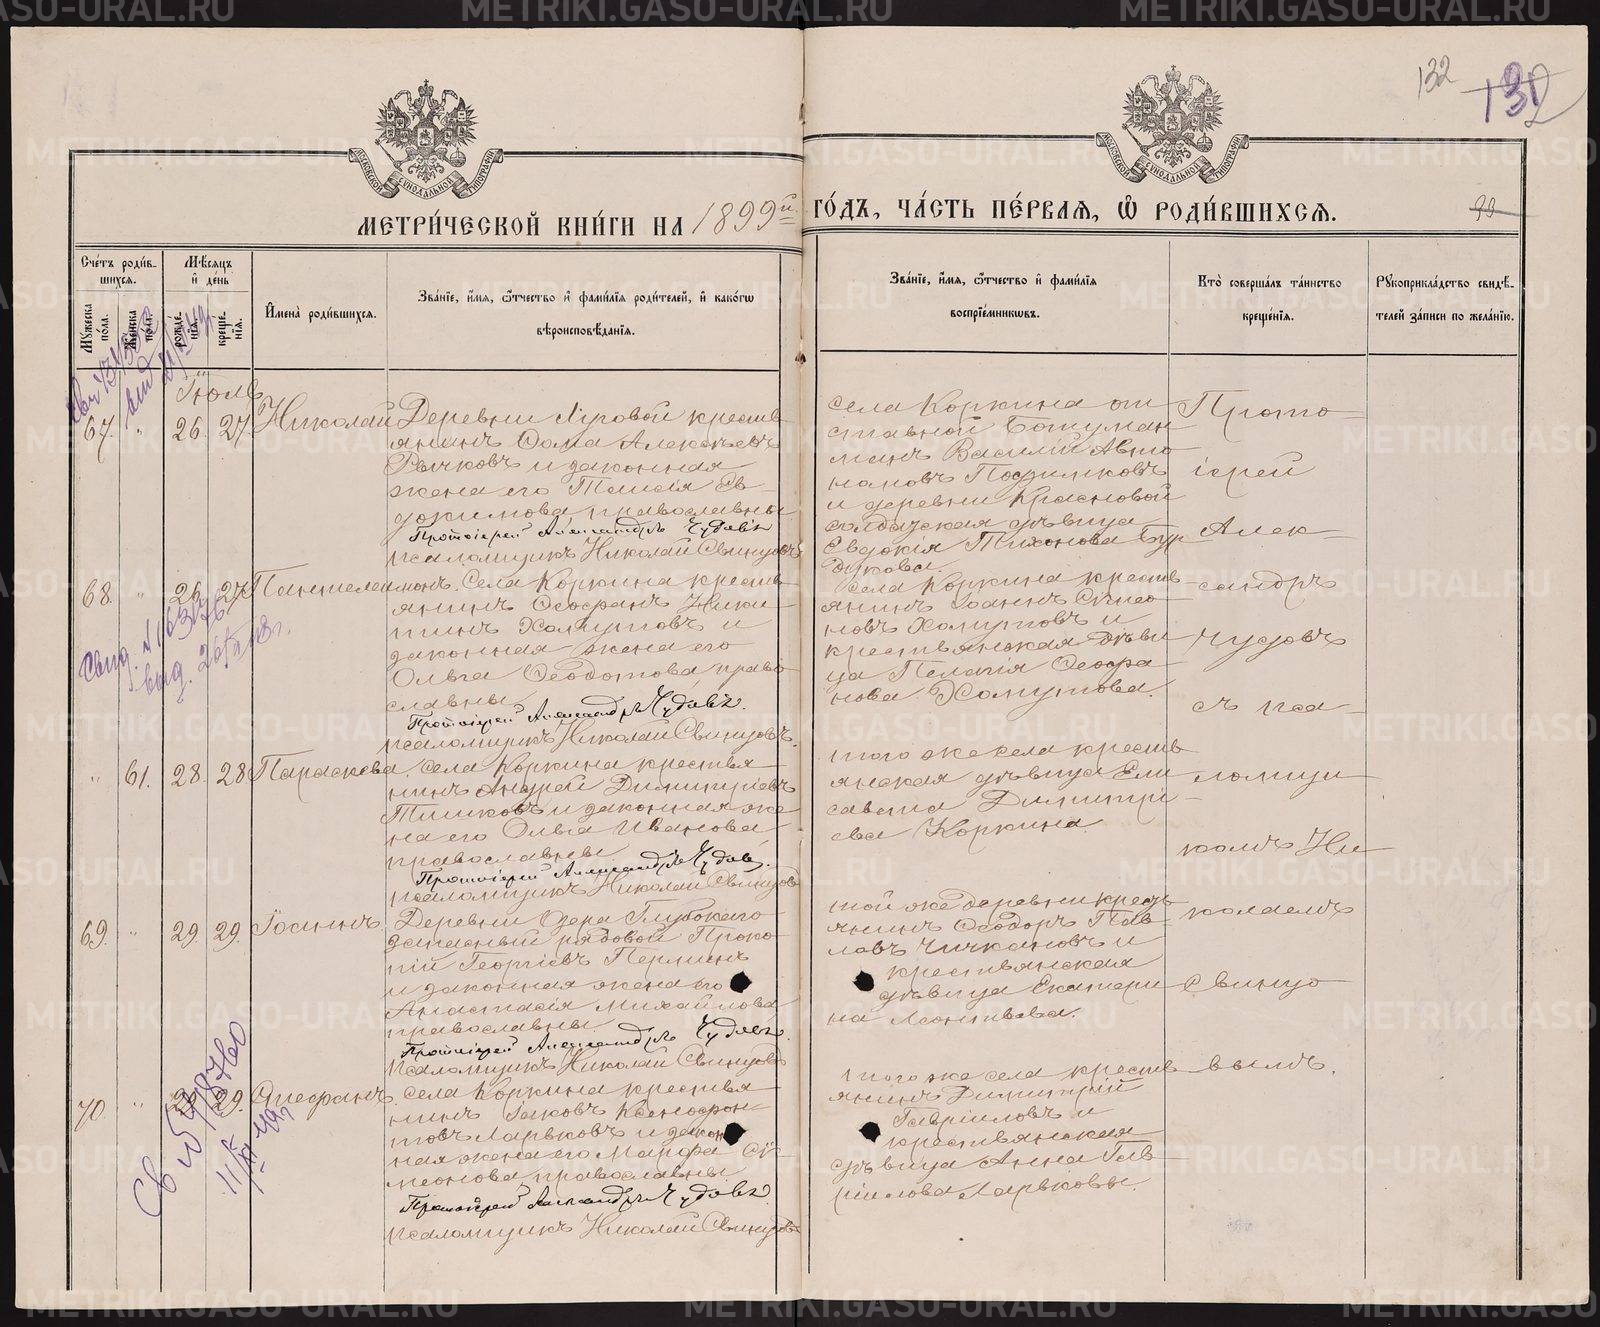 132
132
МОСКОВСКОЙ СѴНОДАЛЬНОЙ ТИПОГРАФІИ
МОСКОВСКОЙ СѴНОДАЛЬНОЙ ТИПОГРАФІИ
МЕТРИ́ЧЕСКОЙ КНИ́ГИ НА 1899й ГО́ДЪ, ЧА́СТЬ ПЕ́РВАЯ, Ѽ РОДИ́ВШИХСЯ.
99
Сче́тъ роди́в-
шихся.
Мꙋжеска по́ла.
Же́нска по́ла.
Мѣ́сяцъ
и҆ де́нь
рожде́-
нїя.
креще́-
нїя.
И҆мена̀ роди́вшихся.
Зва́нїе, и҆́мя, ѻ҆́тчество и҆ фами́лїя роди́телей, и҆ како́гѡ
вѣроисповѣ́данїя.
Зва́нїе, и҆́мя, ѻ҆́тчество и҆ фами́лїя
воспрїе́мникѡвъ.
Кто̀ соверша́лъ та́инство
креще́нїя.
Рꙋкоприкла́дство свидѣ́-
телей за́писи по жела́нїю.
Іюль
67. " 26. 27. Николай
Деревни Луговой кресть
янинъ Ѳома Алексѣевъ
Рычковъ и законная
жена его Таисія Ев-
докимова православны
Протоіерей Александръ Чудовъ
Псаломщикъ Николай Свинцовъ
села Коркина от
ставной Боцман
манъ Василій Авто
номовъ
и деревни Красновой
солдатская дѣвица
Евдокія Тихонова Бур
дукова.
68. " 26. 27 Пантелеимонъ.
Села Коркина кресть
янинъ Ѳеофанъ Ники
тинъ Хомутовъ и
законная жена его
Ольга Ѳеодотова право
славны
Протоіерей Александръ Чудовъ.
Псаломщикъ Николай Свинцовъ.
Села Коркина кресть
янинъ Іоаннъ Сѵмео
новъ Хомутовъ и
крестьянская дѣви
ца Пелагія Ѳеофа
нова Хомутова.
" 61. 28. 28 Параскева.
села Коркина крестья
нинъ Андрей Димитріевъ
и законная же
на его Ольга Иванова
православны
Протоіерей Александръ Чудовъ.
Псаломщикъ Николай Свинцовъ
того же села кресть
янская дѣвица Ели
савета Димитрі-
ева Коркина.
69. " 29. 29. Іоаннъ
Деревни Озера Глубокаго
запасный рядовой Проко
пій Георгіевъ Перминъ
и законная жена его
Анастасія Михайлова
православны.
Протоіерей Александръ Чудовъ
Псаломщикъ Николай Свинцовъ
той же деревни кресть
янинъ Ѳеодоръ Пав-
ловъ Чичкановъ и
крестьянская
дѣвица Екатери
на Леонтьева.
70 " 29. Стефанъ.
села Коркина крестья
нинъ Іаковъ Ксенофон-
товъ Ларьковъ и закон
ная жена его Марфа Сѵ-
меонова православны.
Протоіерей Александръ Чудовъ
Псаломщикъ Николай Свинцовъ
того же села кресть
янинъ Димитрій
Гавріиловъ и
крестьянская
дѣвица Анна Гав-
ріилова Ларьковы.
Прото-
іерей
Алек-
сандръ
Чудовъ
съ пса-
ломщи-
комъ Ни
колаемъ
Свинцо
вымъ.